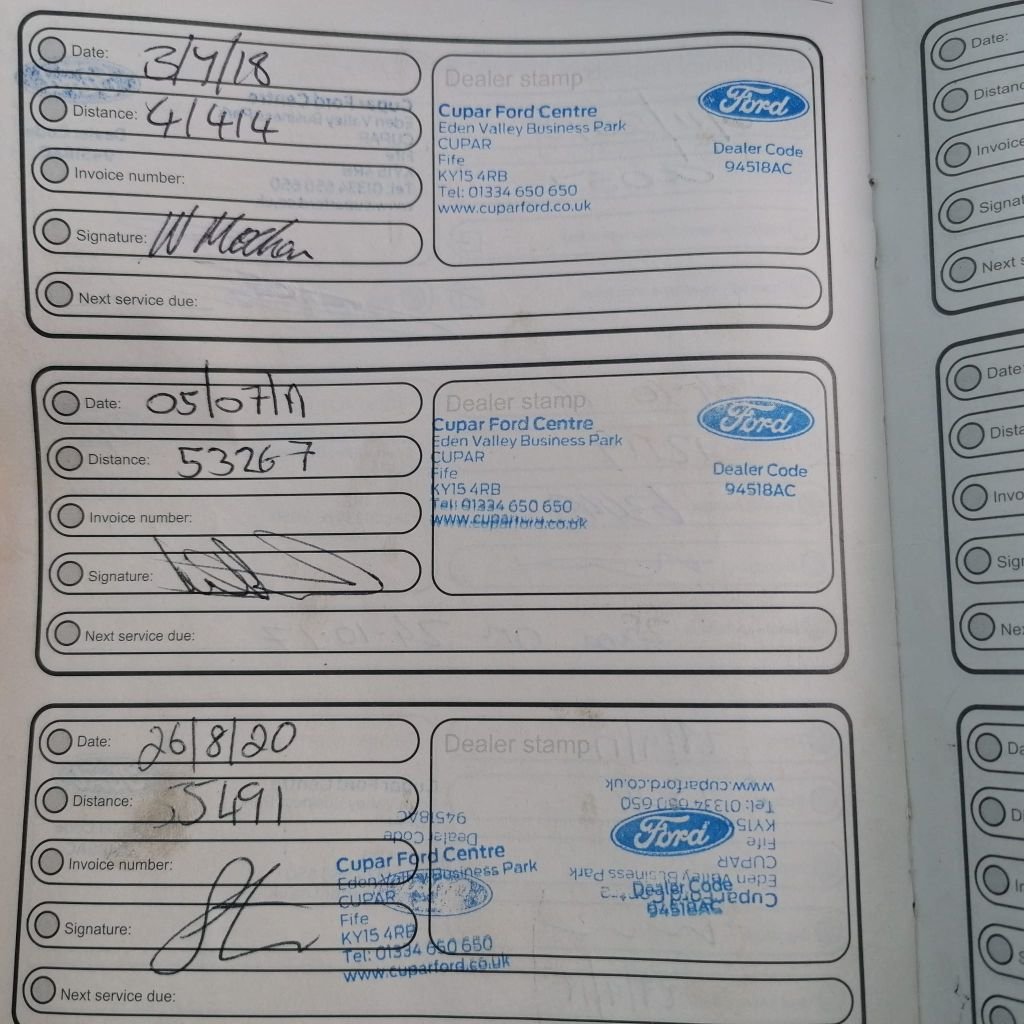 Date: 3/7/18
Distance: 41414
Invoice number:
Signature:
Next service due:
Dealer stamp
Cupar Ford Centre
Eden Valley Business Park
CUPAR
Fife
KY15 4RB
Tel: 01334 650 650
www.cuparford.co.uk
Ford
Dealer Code
94518AC
Date: 05/07/19
Distance: 53267
Invoice number:
Signature:
Next service due:
Dealer stamp
Cupar Ford Centre
Eden Valley Business Park
CUPAR
Fife
KY15 4RB
Tel: 01334 650 650
www.cuparford.co.uk
Ford
Dealer Code
94518AC
Date: 26/8/20
Distance: 5491
Invoice number:
Signature:
Next service due:
Dealer stamp
94518AC
Dealer Code
Cupar Ford Centre
Eden Valley Business Park
CUPAR
Fife
KY15 4RB
Tel: 01334 650 650
www.cuparford.co.uk
www.cuparford.co.uk
Tel: 01334 650 650
KY15
Fife
CUPAR
Eden Valley Business Park
Cupar Ford
Ford
Dealer Code
94518AC
Date:
Invoice
Next
Date